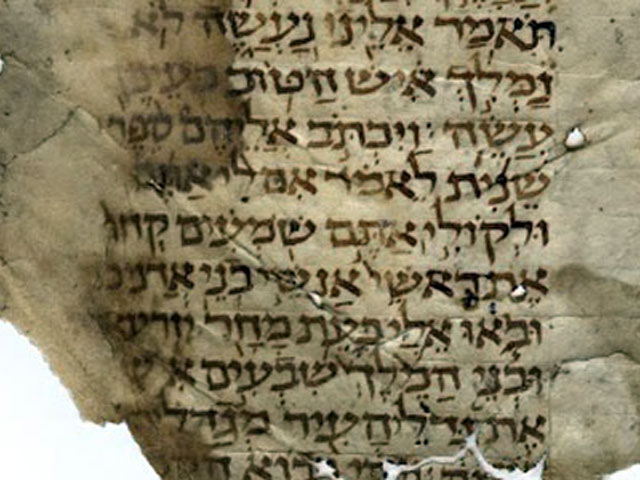 תאמר אלינו נעשה לא
נמלך איש הטוב בעינ
עשה ויכתב אליהם ספר
שנית לאמר אם לי אתם
ולקולי אתם שמעים קחו
את ראשי אנשי בני אדניכם
ובאו אלי כעת מחר יזרע
ובני המלך שבעים איש
את גדלי העיר מגדלים